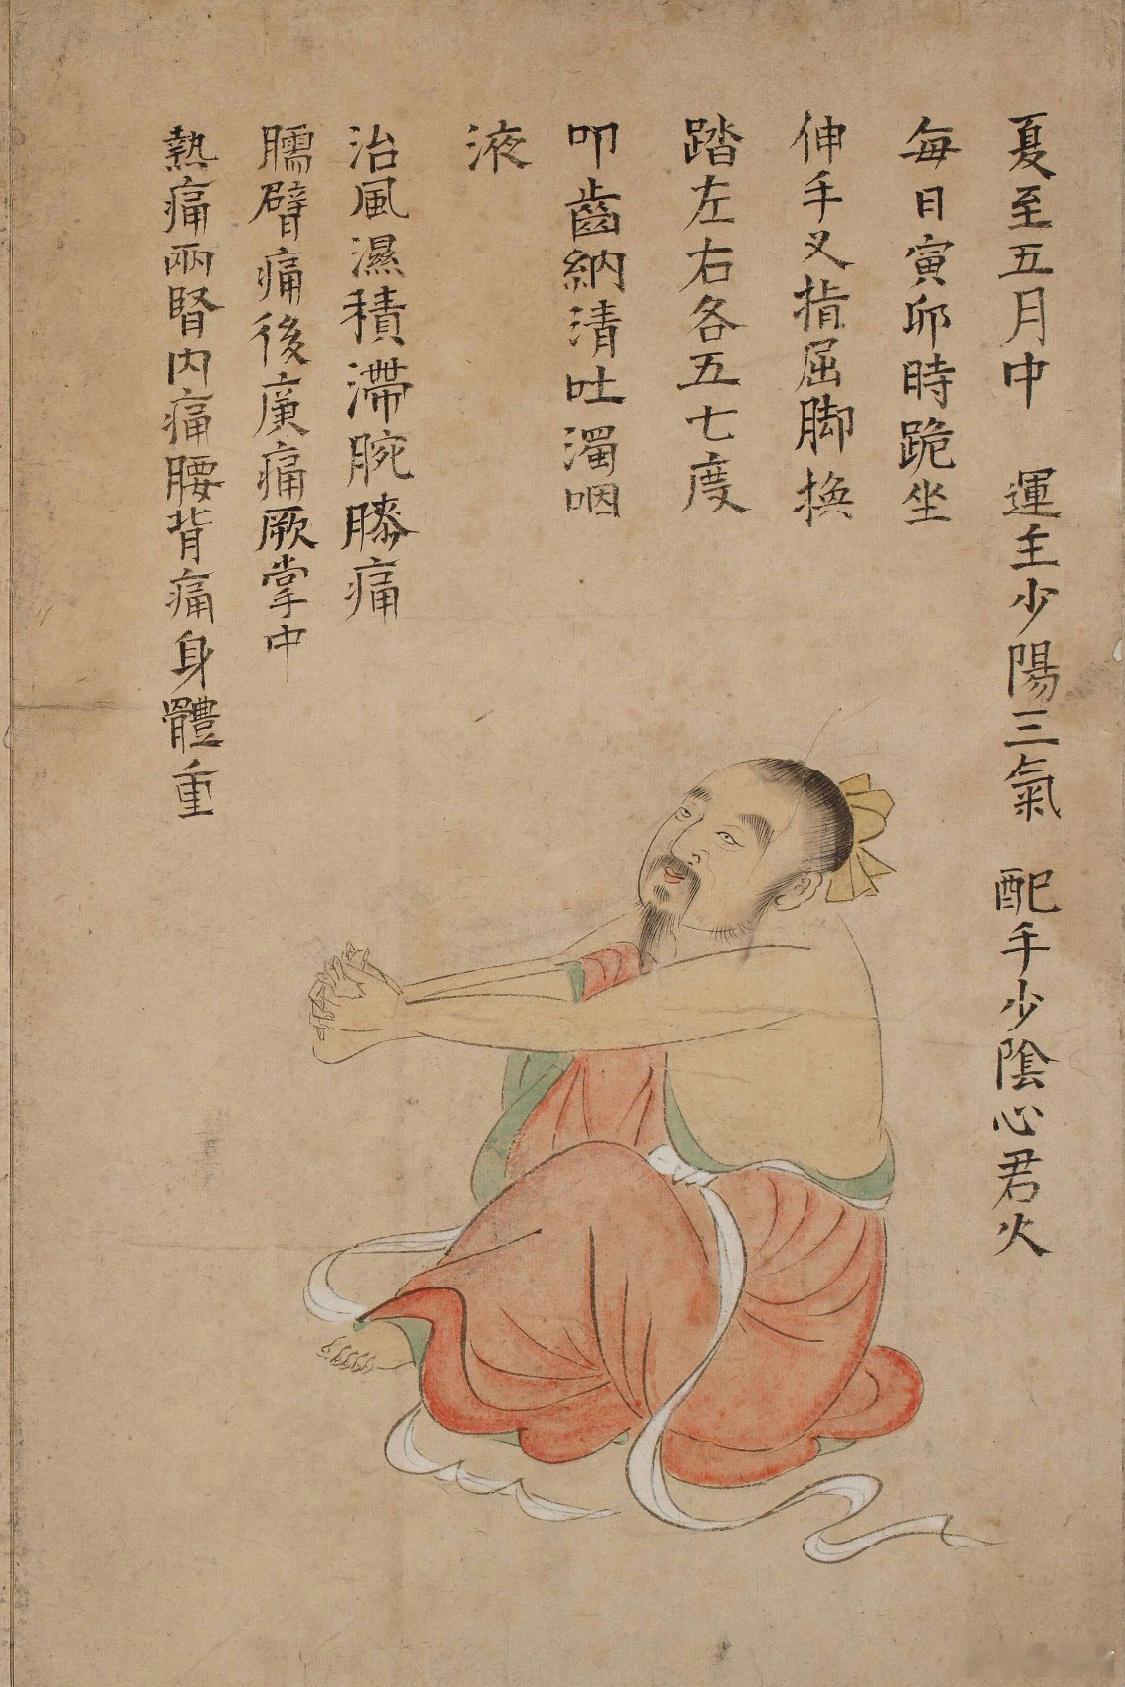 夏至五月中 運主少陽三氣 配手少陰心君火
每日寅卯時跪坐
伸手叉指屈脚換
踏左右各五七度
叩齒納清吐濁咽
液
治風濕積滯腕膝痛
臑臂痛後廉痛厥掌中
熱痛兩腎内痛腰背痛身體重